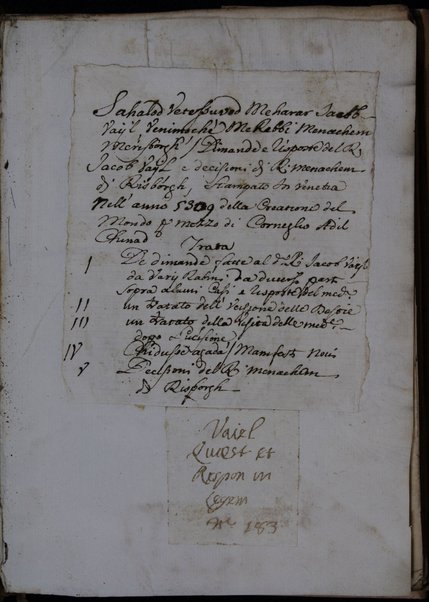 Sahalod Vetessuvod Meharar Jacob
Vayl Venimsche Mekebbi Menachem
Mirisborgh / Dimande e risposte del R.
Jacob Vayl e decisioni di R. Menachem
di Risborgh, Stampato in Venetia
Nell'anno 5309 della Creatione del
Mondo p mezzo di Corneglio Adil
Chinad
Trata
I De dimande fatte al d. R. Jacob Vayl
da varij Rabni da diverse part
sopra alcuni Casi e risposte del med.
II un tratato dell' Ucisione delle Bestie
III un tratato della Visita delle med.
doppo l'ucisione
IV Chidusse agada / Manifest. Novi
V Decisioni del R. Menachem
di Risborgh
Vaiel
Quæst et
Respon in
Legem
N. 183